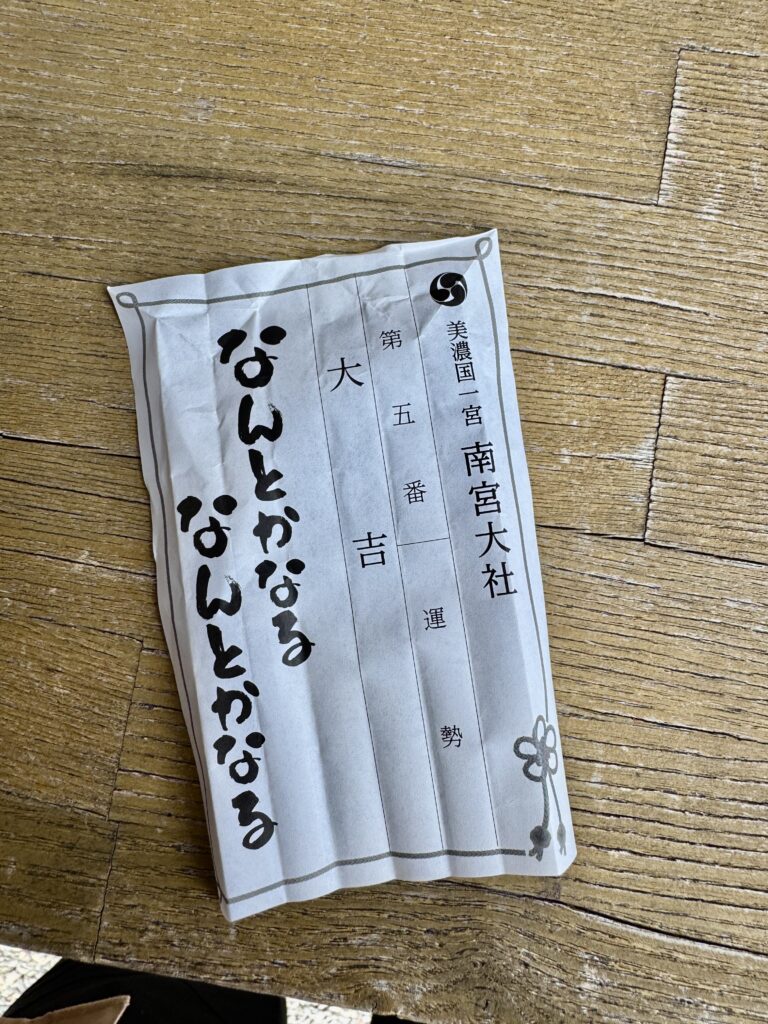 美濃国一宮 南宮大社
第五番 運勢
大吉
なんとかなる
なんとかなる